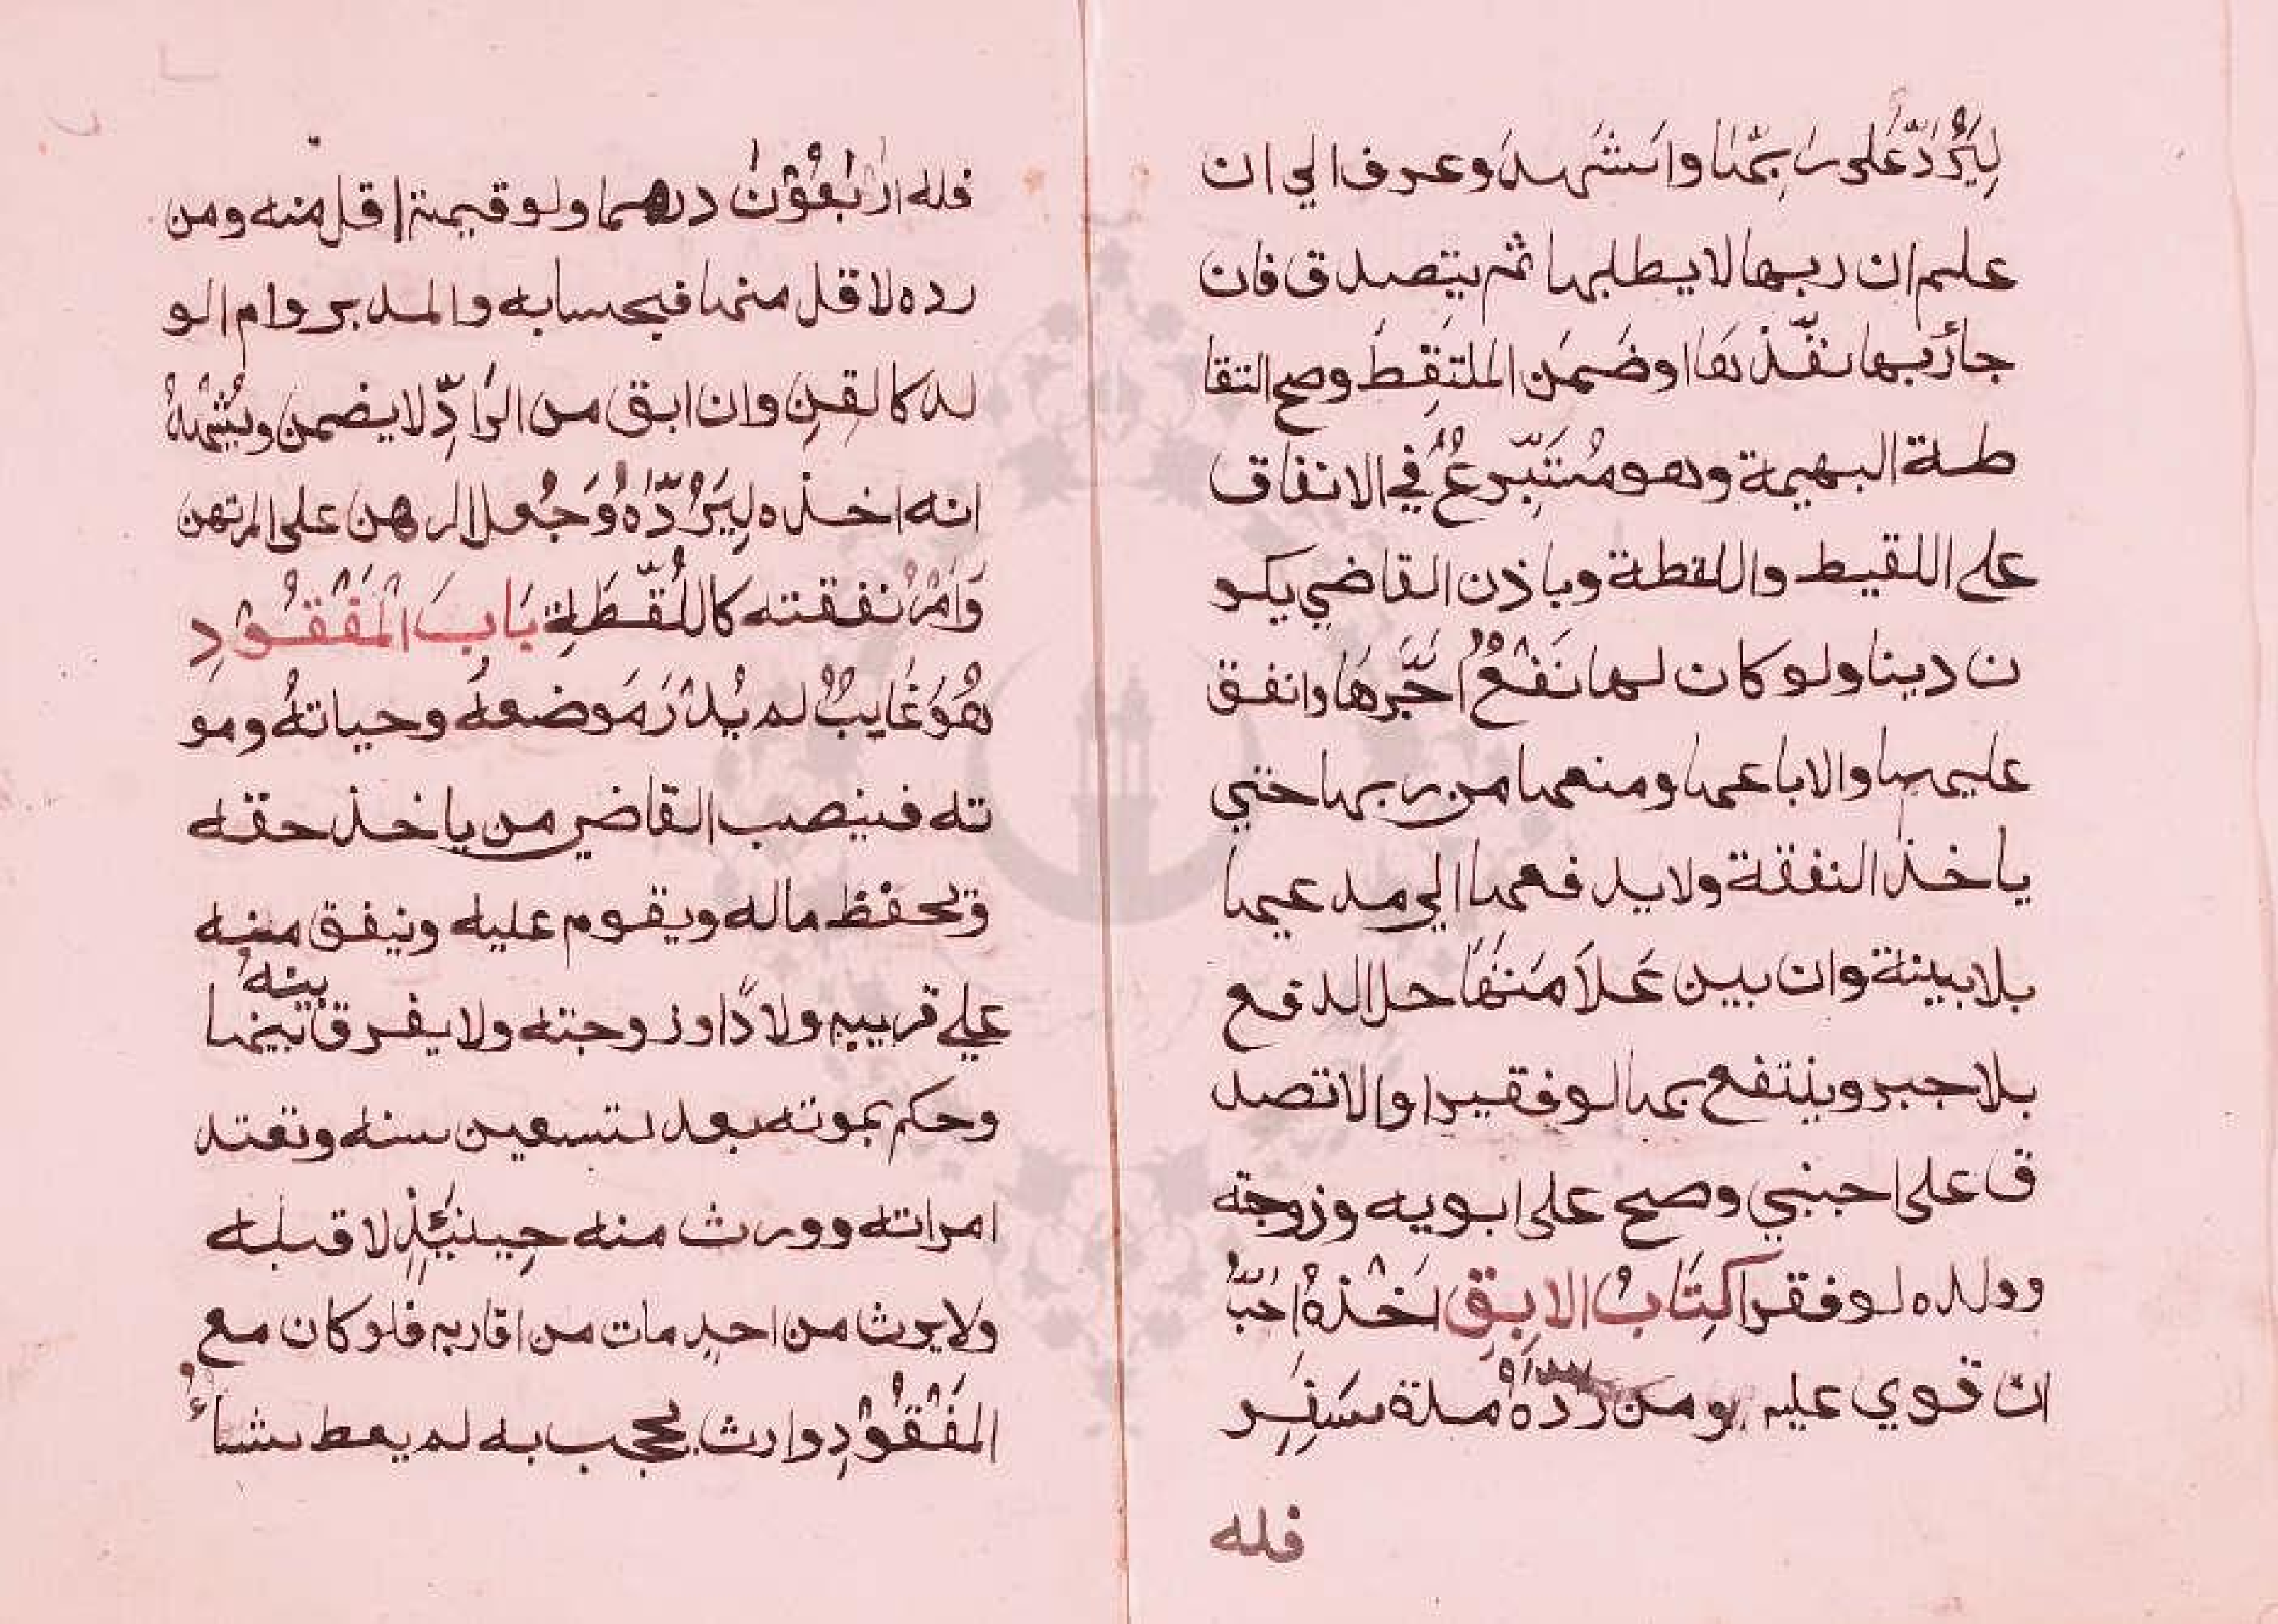 لِيَرُدَّ عَلى رَبِّهَا وَاشَهِدَ وعرف الي ان
علم ان ربها لا يطلبها ثم يتصدق فان
جاء ربها نفّذها او ضَمَن الملتَقِطَ وصح التقا
طة البهيمة وهو مُتَبَرّعٌ في الانفاق
على اللقيط واللقطة وباذن القاضي يكو
ن دينا ولو كان لها نَفْعٌ اجَّرهَا وانفق
عليها والا باعها ومنعها من ربها حتي
ياخذ النفقة ولا يدفعها الي مدعيها
بلا بينة وان بين عَلاَمَتَهَا حل الدفع
بلا جبر وينتفع بها لو فقيرا والا تصد
ق على اجنبي وصح على ابويه وزوجته
وولده لو فقرا كِتَابُ الابِقِ اَخْذهُ احَبُّ
ان قوي عليه ومن رَدّهُ مدة سَفِر
فله
فله ارْبَعُوْنَ درهما ولو قيمته اقل منه ومن
رده لاقل منها فبحسابه والمدبر وام الو
لد كالقِنِ وان ابق من الرَادِّ لا يضمن ويُشْهدُ
انه اخذه لِيَرُدّهُ وَجُعل الرهن على المرتهن
وَامْرُ نفقته كاللُقَطَةِ بَابَ الْمَفْقُوْدِ
هُوَ غَايبٌ لم يُدْرَ مَوضعهُ وحياتهُ ومو
ته فينصب القاضي من ياخذ حقه
ويحفظ ماله ويقوم عليه وينفق منه
علي قريبه ولادًا وزوجته ولا يفرق بينه بينها
وحكم بموته بعد تسعين سنه وتعتد
امراته وورث منه حِينَئِذٍ لا قبله
ولا يرث من احدٍ مات من اقاربه فلو كان مع
المَفْقُوْدِ وارث يحجب به لم يعط شيأ